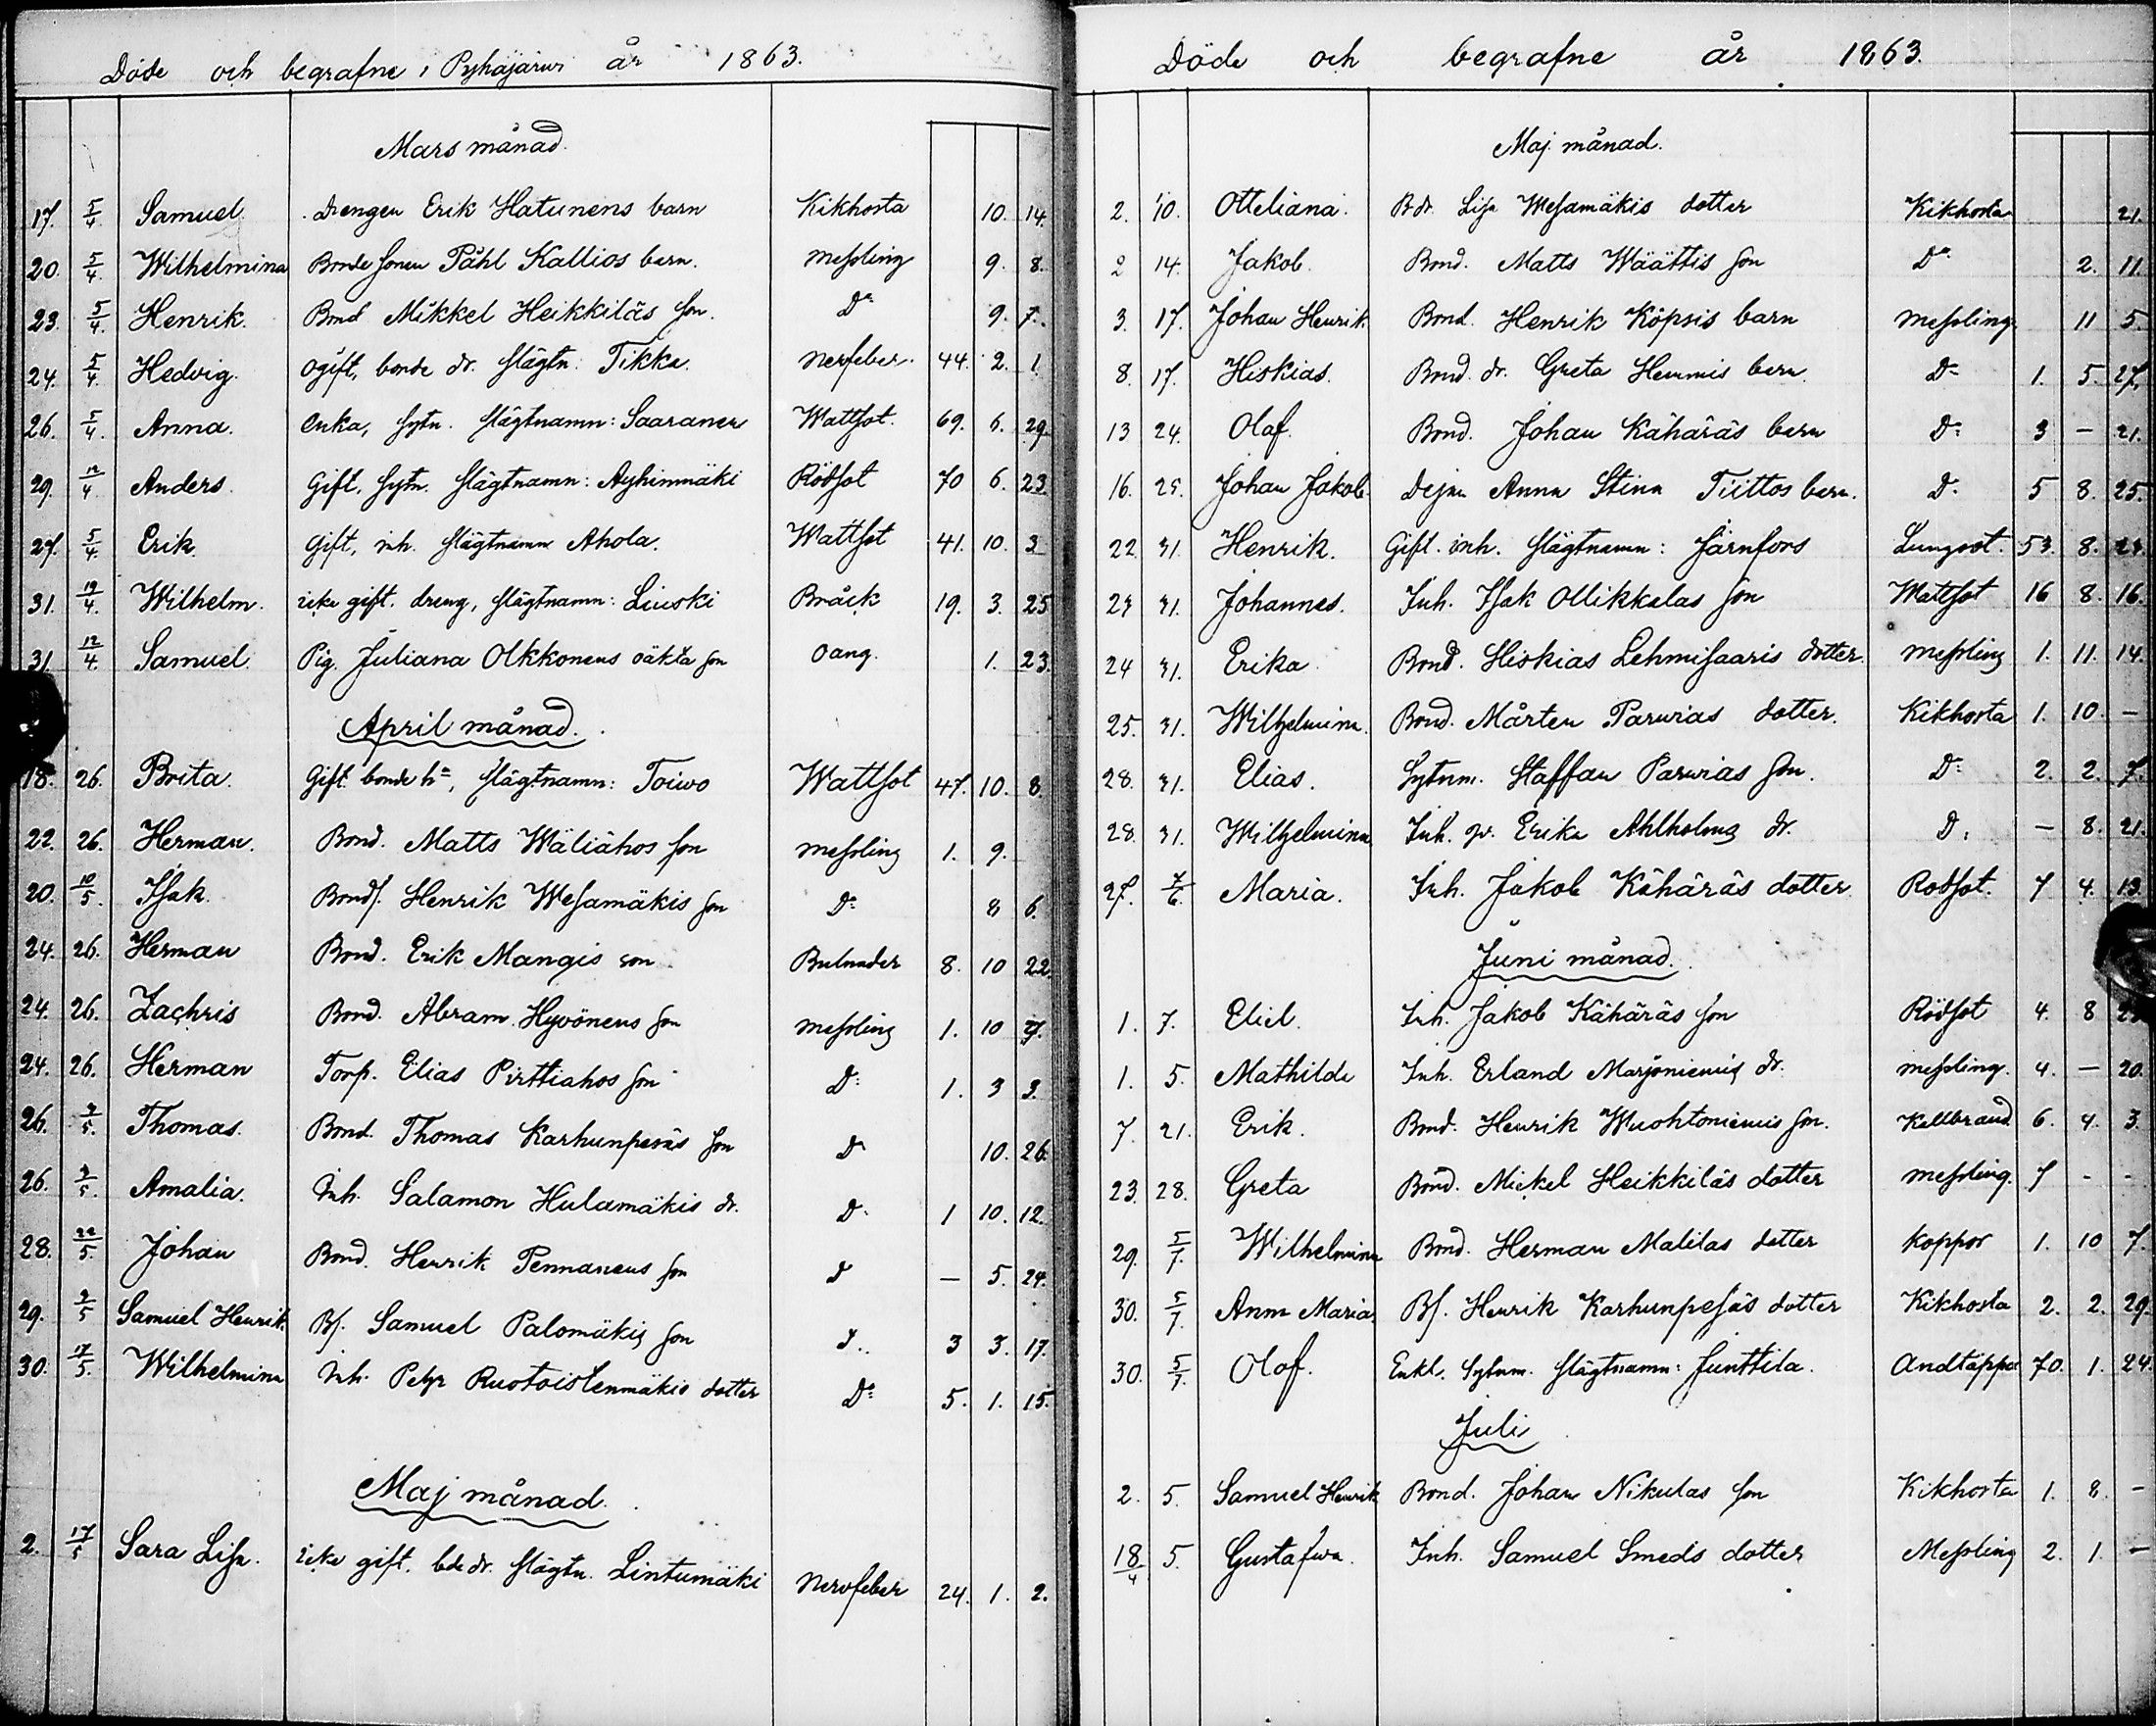 Döde och begrafne i Pyhäjärwi år 1863.
Mars månad.
17. 5/4. Samuel. Drengen Erik Hatunens barn Kikhosta 10. 14.
20. 5/4. Wilhelmina Bonde sonen Påhl Kallios barn. Messling 9. 8.
23. 5/4. Henrik. Bond Mikkel Heikkiläs son. Do 9. 7.
24. 5/4. Hedvig. Ogift, bonde dr. slägtn: Tikka. Nerfeber. 44. 2. 1.
26. 5/4. Anna. Enka, sytn. slägtnamn: Saaranen Wattsot. 69. 6. 29.
29. 12/4. Anders. Gift, sytn. slägtnamn: Ayhinmäki Rödsot 70 6. 23.
27. 5/4. Erik. Gift, inh. slägtnamn Ahola. Wattsot 41. 10. 3
31. 19/4. Wilhelm. icke gift. dreng, slägtnamn: Liuski Bråck 19. 3. 25
31 12/4. Samuel. Pig. Juliana Olkkonens oäkta son oang. 1. 23.
April månad.
18. 26. Brita. Gift bonde h=, slägtnamn: Toiwo Wattsot 47. 10. 8.
22. 26. Herman. Bond. Matts Wäliähos son messling 1. 9.
20. 10/5. Isak. Bonds. Henrik Wesamäkis son Do 8 6.
24. 26. Herman Bond. Erik Mangis son Bulnader 8. 10 22.
24. 26. Zachris Bond. Abram Hyvönens son messling 1. 10 27.
24. 26. Herman Torp. Elias Pirttiahos son D: 1. 3 3.
26. 3/5. Thomas. Bond. Thomas Karhunpesäs son Do 10. 26
26. 3/5. Amalia. Inh. Salamon Hulamäkis dr. D. 1 10. 12.
28. 22/5. Johan Bond. Henrik Pennanens son D — 5. 24.
29. 3/5 Samuel Henrik. Bs. Samuel Palomäkis son D.. 3 3. 17.
30. 17/5. Wilhelmina Inh. Petr Ruotoistenmäkis dotter Do 5. 1. 15.
Maj månad.
2. 17/5 Sara Lisa. icke gift. bde dr. slägtn. Lintumäki Nervfeber 24. 1. 2.
Döde och begrafne år 1863.
Maj månad.
2. 10. Otteliana. B dr. Lisa Wesamäkis dotter Kikhosta 21.
2 14. Jakob. Bond. Matts Wäättis son Do 2. 11.
3. 17. Johan Henrik. Bond. Henrik Köpsis barn messling. 11 5.
8. 17. Hiskias. Bond. dr. Greta Hemmis barn. Do 1. 5. 27.
13 24. Olaf. Bond. Johan Kähäräs barn D: 3 — 21.
16. 25. Johan Jakob. Dejan Anna Stina Tiittos barn. D. 5 8. 25.
22 31. Henrik. Gift. inh. slägtnamn: Järnfors Lungsot. 53. 8. 23.
23 31. Johannes. Inh. Isak Ollikkalas son Wattsot 16 8. 16.
24 31. Erika Bond. Hiskias Lehmisaaris dotter. messling 1. 11. 14.
25. 31. Wilhelmina. Bond. Mårten Parwias dotter. Kikhosta 1. 10. —
28. 31. Elias. Sytnm. Staffan Parwias son. D: 2. 2. 7.
28. 31. Wilhelmina Inh. qv. Erika Ahlholms dr. D: — 8. 21.
27. 7/6. Maria. Inh. Jakob Kähäräs dotter Rodsot. 7 4. 13.
Juni månad.
1. 7. Eliel. Inh. Jakob Kähäräs son Rödsot 4. 8
1. 5. Mathilda Inh. Erland Marjoniemis dr. messling. 4. — 20.
7. 21. Erik. Bond. Henrik Wuohtoniemis son. Kallbrand 6. 4. 3.
23. 28. Greta Bond. Mickel Heikkiläs dotter messling. 7 - -
29. 5/7. Wilhelmina Bond. Herman Malilas dotter koppor 1. 10 7.
30. 5/7. Anna Maria. Bs. Henrik Karhunpesäs dotter Kikhosta 2. 2. 29.
30. 5/7. Olof. Enkl. Sytnm. slägtnamn: Junttila. Andtäppa 70. 1. 24.
Juli
2. 5. Samuel Henrik Bond. Johan Nikulas son Kikhosta 1. 8. -
18/4 5. Gustafwa. Inh. Samuel Smeds dotter Messling 2. 1. —